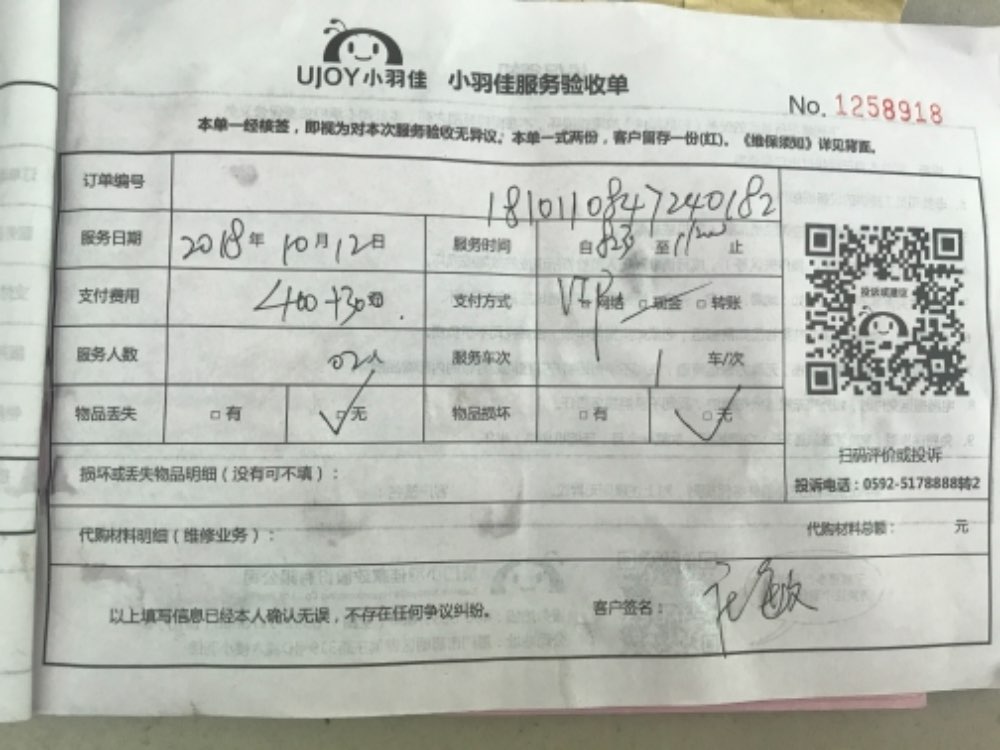 UJOY小羽佳 小羽佳服务验收单
No. 1258918
本单一经核签，即视为对本次服务验收无异议。本单一式两份，客户留存一份(红)。《维保须知》详见背面。
订单编号 1810110847240182
服务日期 2018年10月12日 服务时间 自830至1200止
支付费用 400+30 支付方式 VIP □网结 □现金 □转账
服务人数 02人 服务车次 1 车/次
物品丢失 □有 □无 物品损坏 □有 □无
投诉或建议
扫码评价或投诉
投诉电话：0592-5178888转2
损坏或丢失物品明细（没有可不填）：
代购材料明细（维修业务）： 代购材料总额： 元
以上填写信息已经本人确认无误，不存在任何争议纠纷。 客户签名：